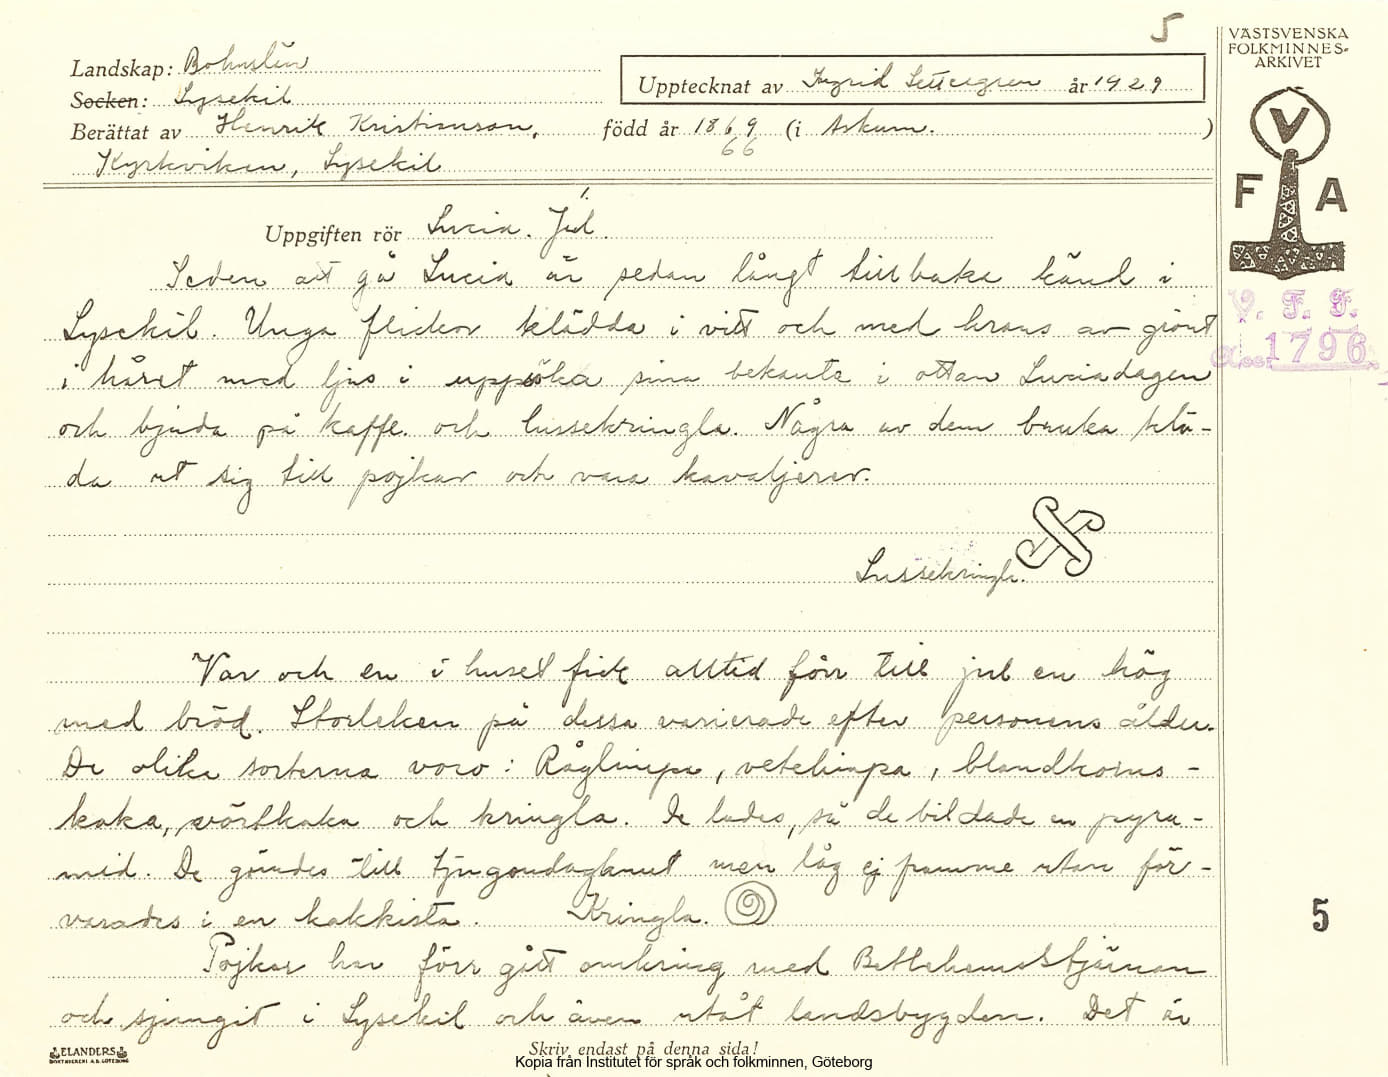 5
VÄSTSVENSKA
FOLKMINNES-
ARKIVET
Landskap: Bohuslän
Socken: Lysekil
Upptecknat av Ingrid Settergren år 1929
Berättat av Henrik Kristianson, född år 1869 (i Askum. )
66
Kyrkviken, Lysekil
V
F A
Uppgiften rör Lucia. Jul.
Seden att gå Lucia är sedan långt tillbaka känd i
Lysekil. Unga flickor klädda i vitt och med krans av grönt
i håret med ljus i uppsöka sina bekanta i ottan Luciadagen
och bjuda på kaffe och lussekringla. Några av dem bruka klä-
da ut sig till pojkar och vara kavaljerer.
V. F. F.
Acc. 1796.
Lussekringla.
Var och en i huset fick alltid förr till jul en hög
med bröd. Storleken på dessa varierade efter personens ålder.
De olika sorterna voro: Råglimpa, vetelimpa, blandkorns-
kaka, vörtkaka och kringla. De lades, så de bildade en pyra-
mid. De gömdes till tjugondagknut men låg ej framme utan för-
varades i en kakkista. Kringla.
5
Pojkar har förr gått omkring med Betlehemsstjärnan
och sjungit i Lysekil och även utåt landsbygden. Det är
ELANDERS
BOKTRYCKERI A.B. GÖTEBORG
Skriv endast på denna sida!
Kopia från Institutet för språk och folkminnen, Göteborg